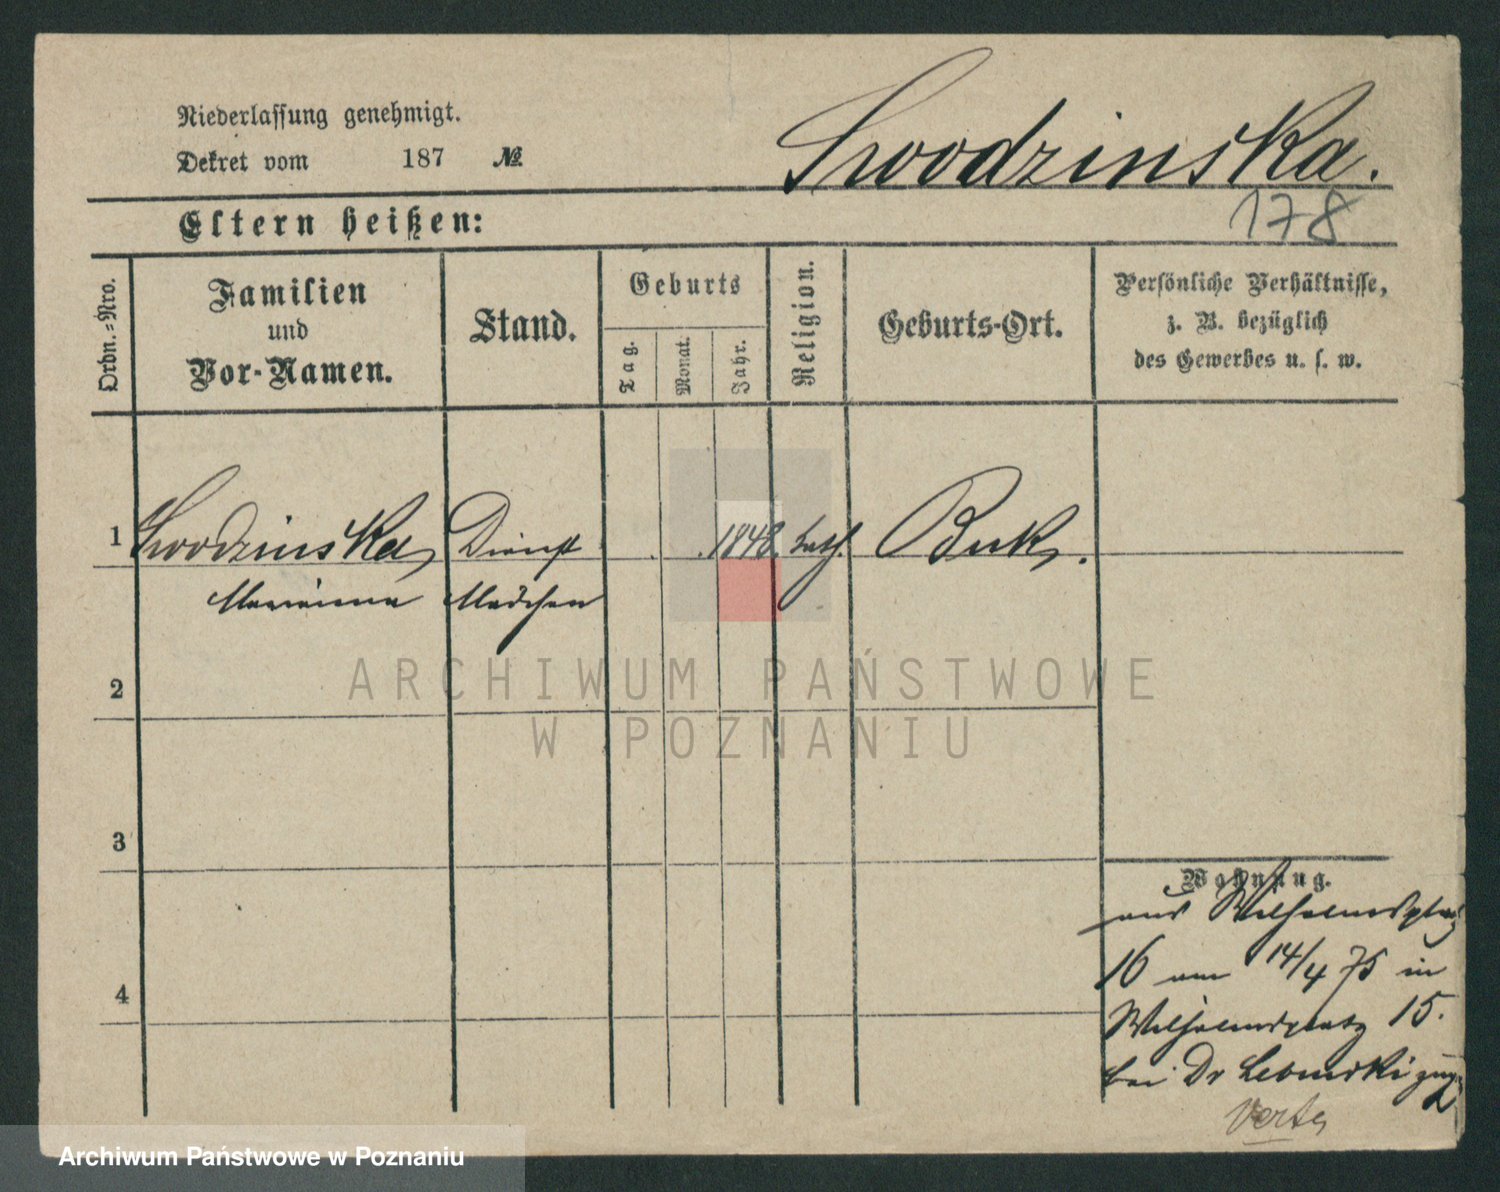 Niederlassung genehmigt.
Dekret vom 187 №
Swodzinska.
178
Eltern heißen:
Ordn.-Nro.
Familien
und
Vor-Namen.
Stand.
Geburts
Tag.
Monat.
Jahr.
Religion.
Geburts-Ort.
Persönliche Verhältnisse,
z. B. bezüglich
des Gewerbes u. s. w.
1 Swodzinska Dienst 1848 kath. Buk.
Marianna Mädchen
2
3
4
Wohnung.
aus Wilhelmsplatz
16 am 14/4 75 in
Wilhelmsplatz 15.
bei Dr
Verte
ARCHIWUM PAŃSTWOWE
W POZNANIU
Archiwum Państwowe w Poznaniu